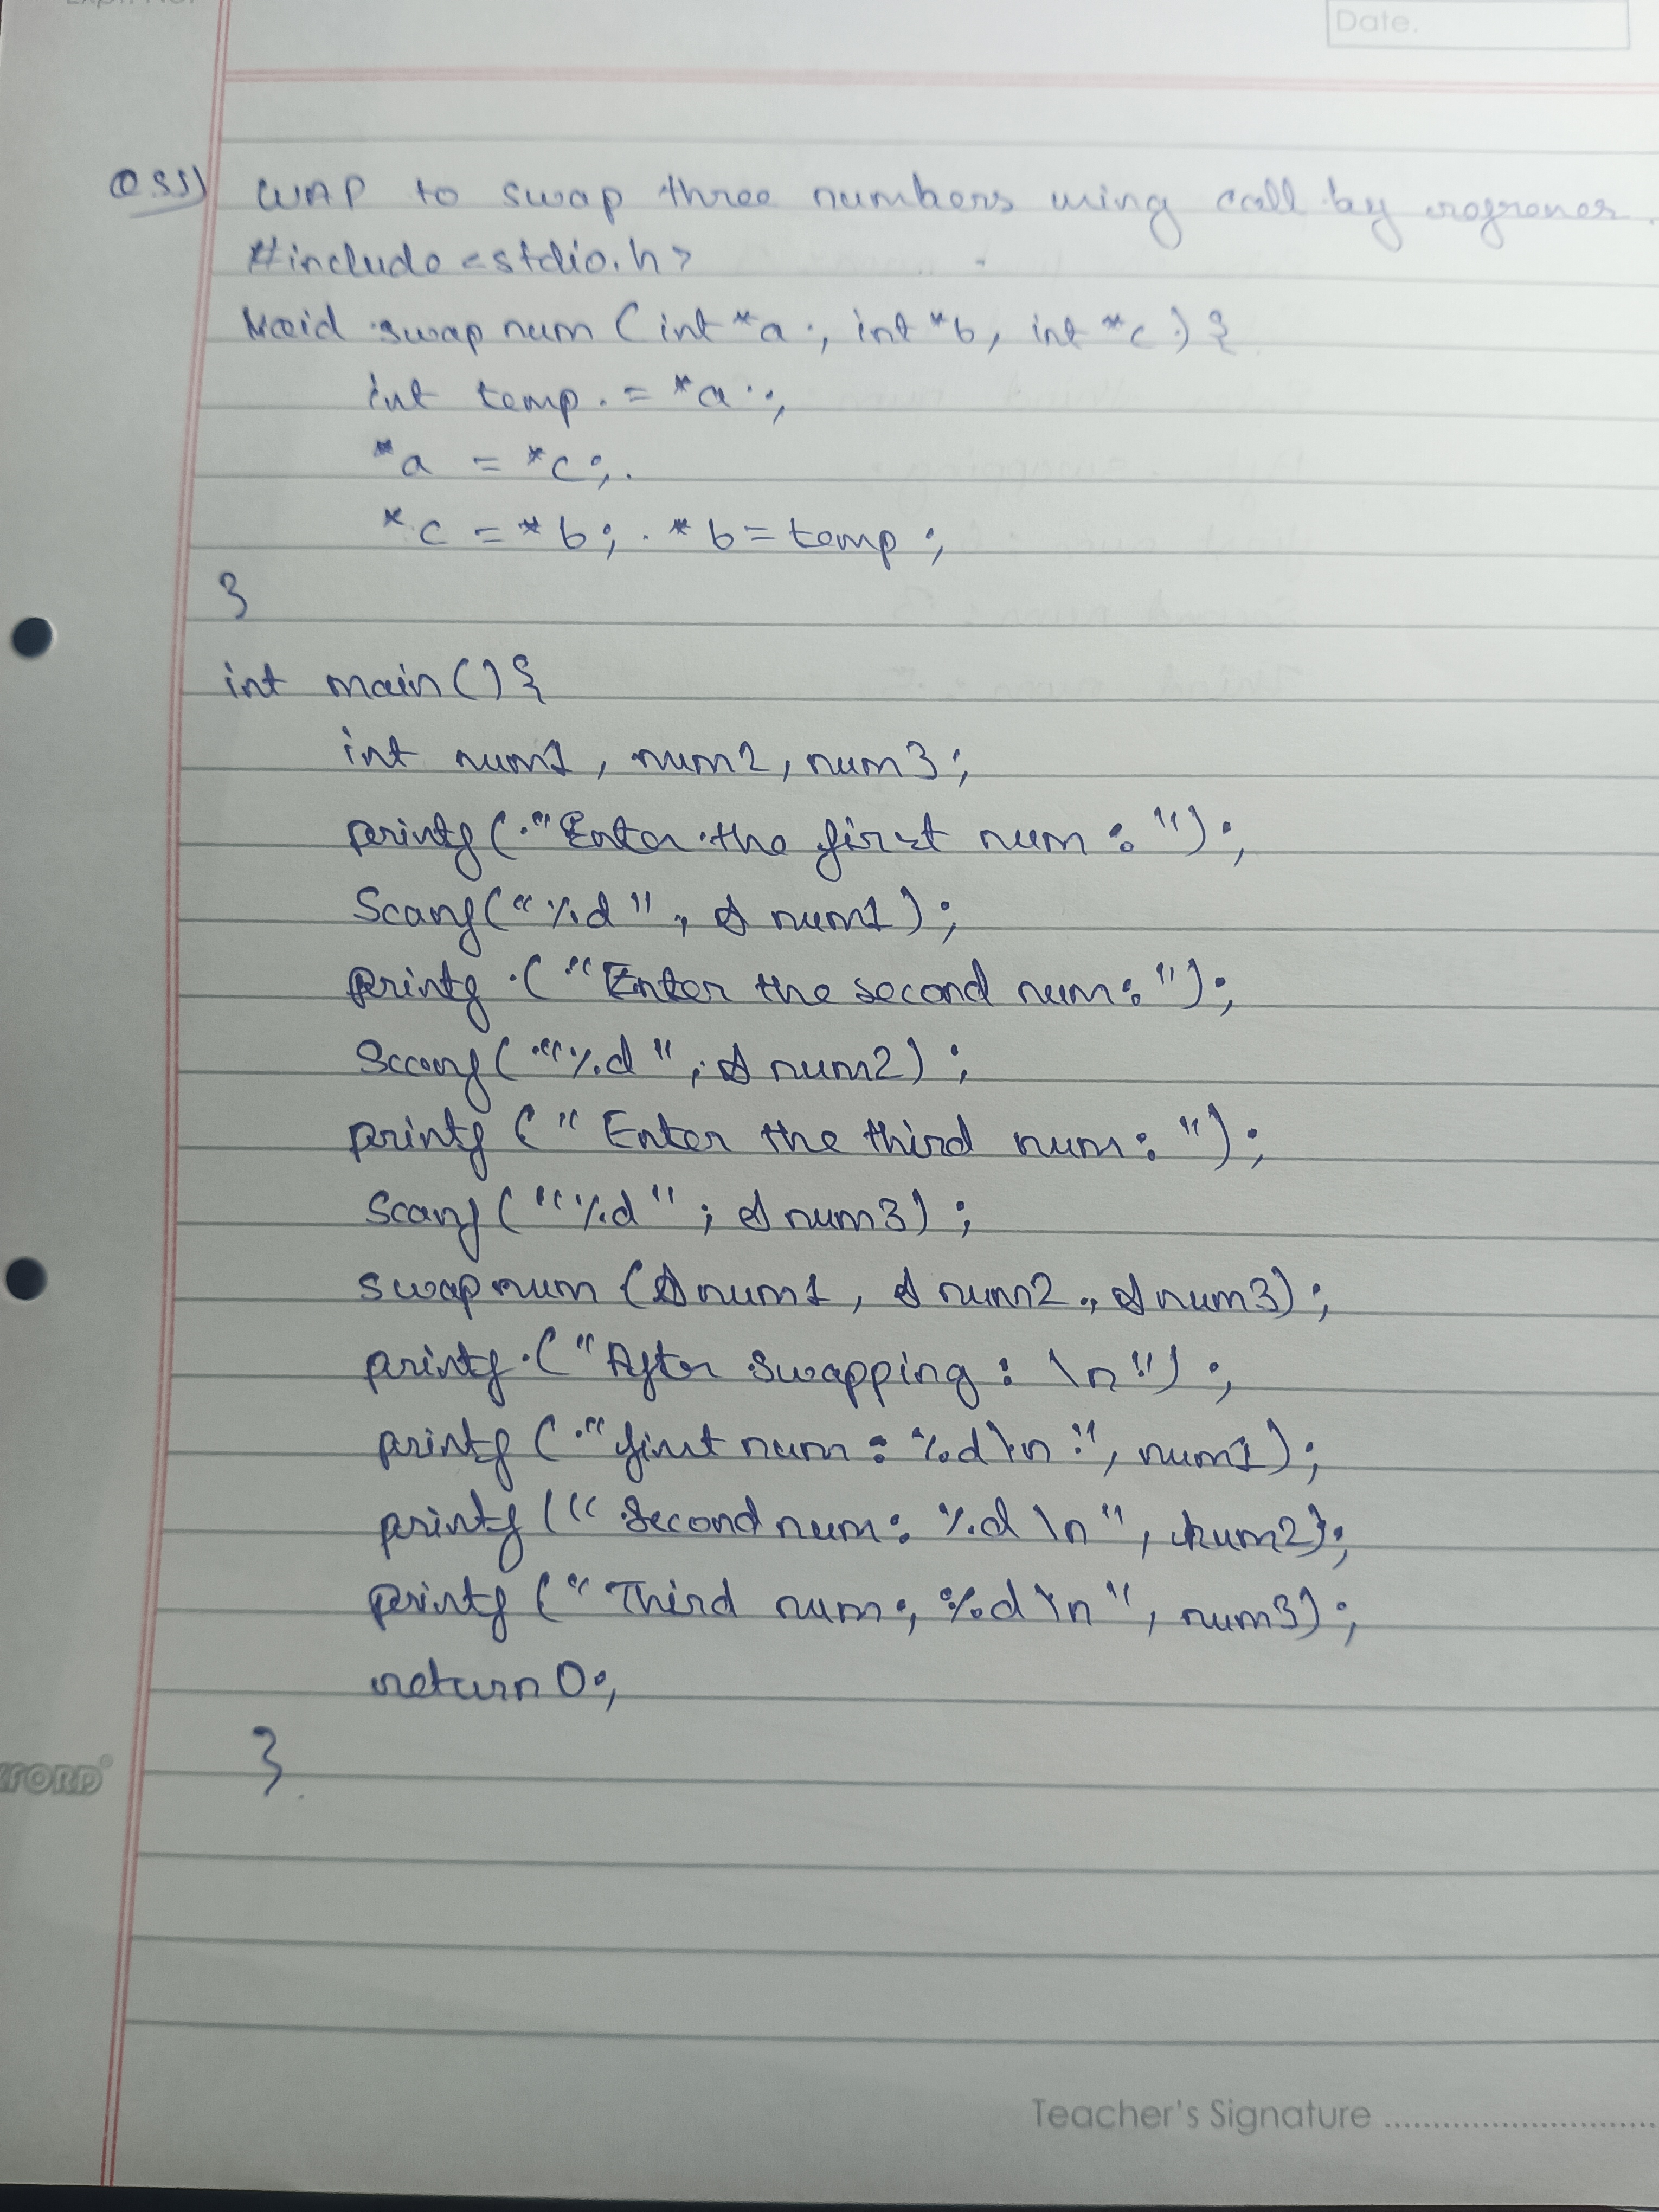 Date.
Q55) WAP to swap three numbers using call by
#include <stdio.h>
Void swapnum (int *a, int *b, int *c) {
int temp = *a;
*a = *c;
*c = *b; *b = temp;
}
int main() {
int num1, num2, num3;
printf("Enter the first num: ");
Scanf("%d", & num1);
printf ("Enter the second num: ");
Scanf("%d", & num2);
printf ("Enter the third num: ");
Scanf("%d"; & num3);
swapnum (&num1, & num2, & num3);
printf ("After swapping: \n");
printf ("first num: %d\n", num1);
printf ("Second num: %d \n", num2);
printf ("Third num; %d\n", num3);
return 0;
}
Teacher's Signature